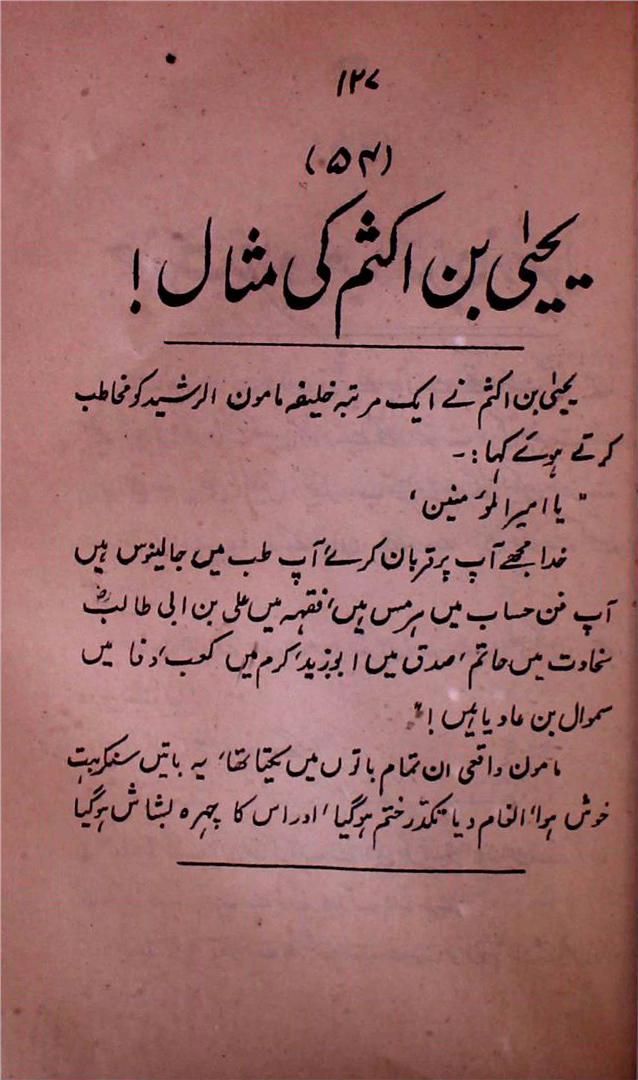 ۱۲۷
(۵۴)
یحییٰ بن اکثم کی مثال!
یحییٰ بن اکثم نے ایک مرتبہ خلیفہ مامون الرشید کو مخاطب
کرتے ہوئے کہا:۔
"یا امیر المؤمنین،
خدا مجھے آپ پر قربان کرے، آپ طب میں جالینوس ہیں
آپ فن حساب میں ہرمس ہیں، فقہہ میں علی بن ابی طالبؓ
سخاوت میں حاتم، صدق میں ابوزید، کرم میں کعب، وفا میں
سموال بن عادیا ہیں!"
مامون واقعی ان تمام باتوں میں یکتا تھا، یہ باتیں سنکر بہت
خوش ہوا، انعام دیا، تکدّر ختم ہوگیا، اور اس کا چہرہ بشاش ہوگیا